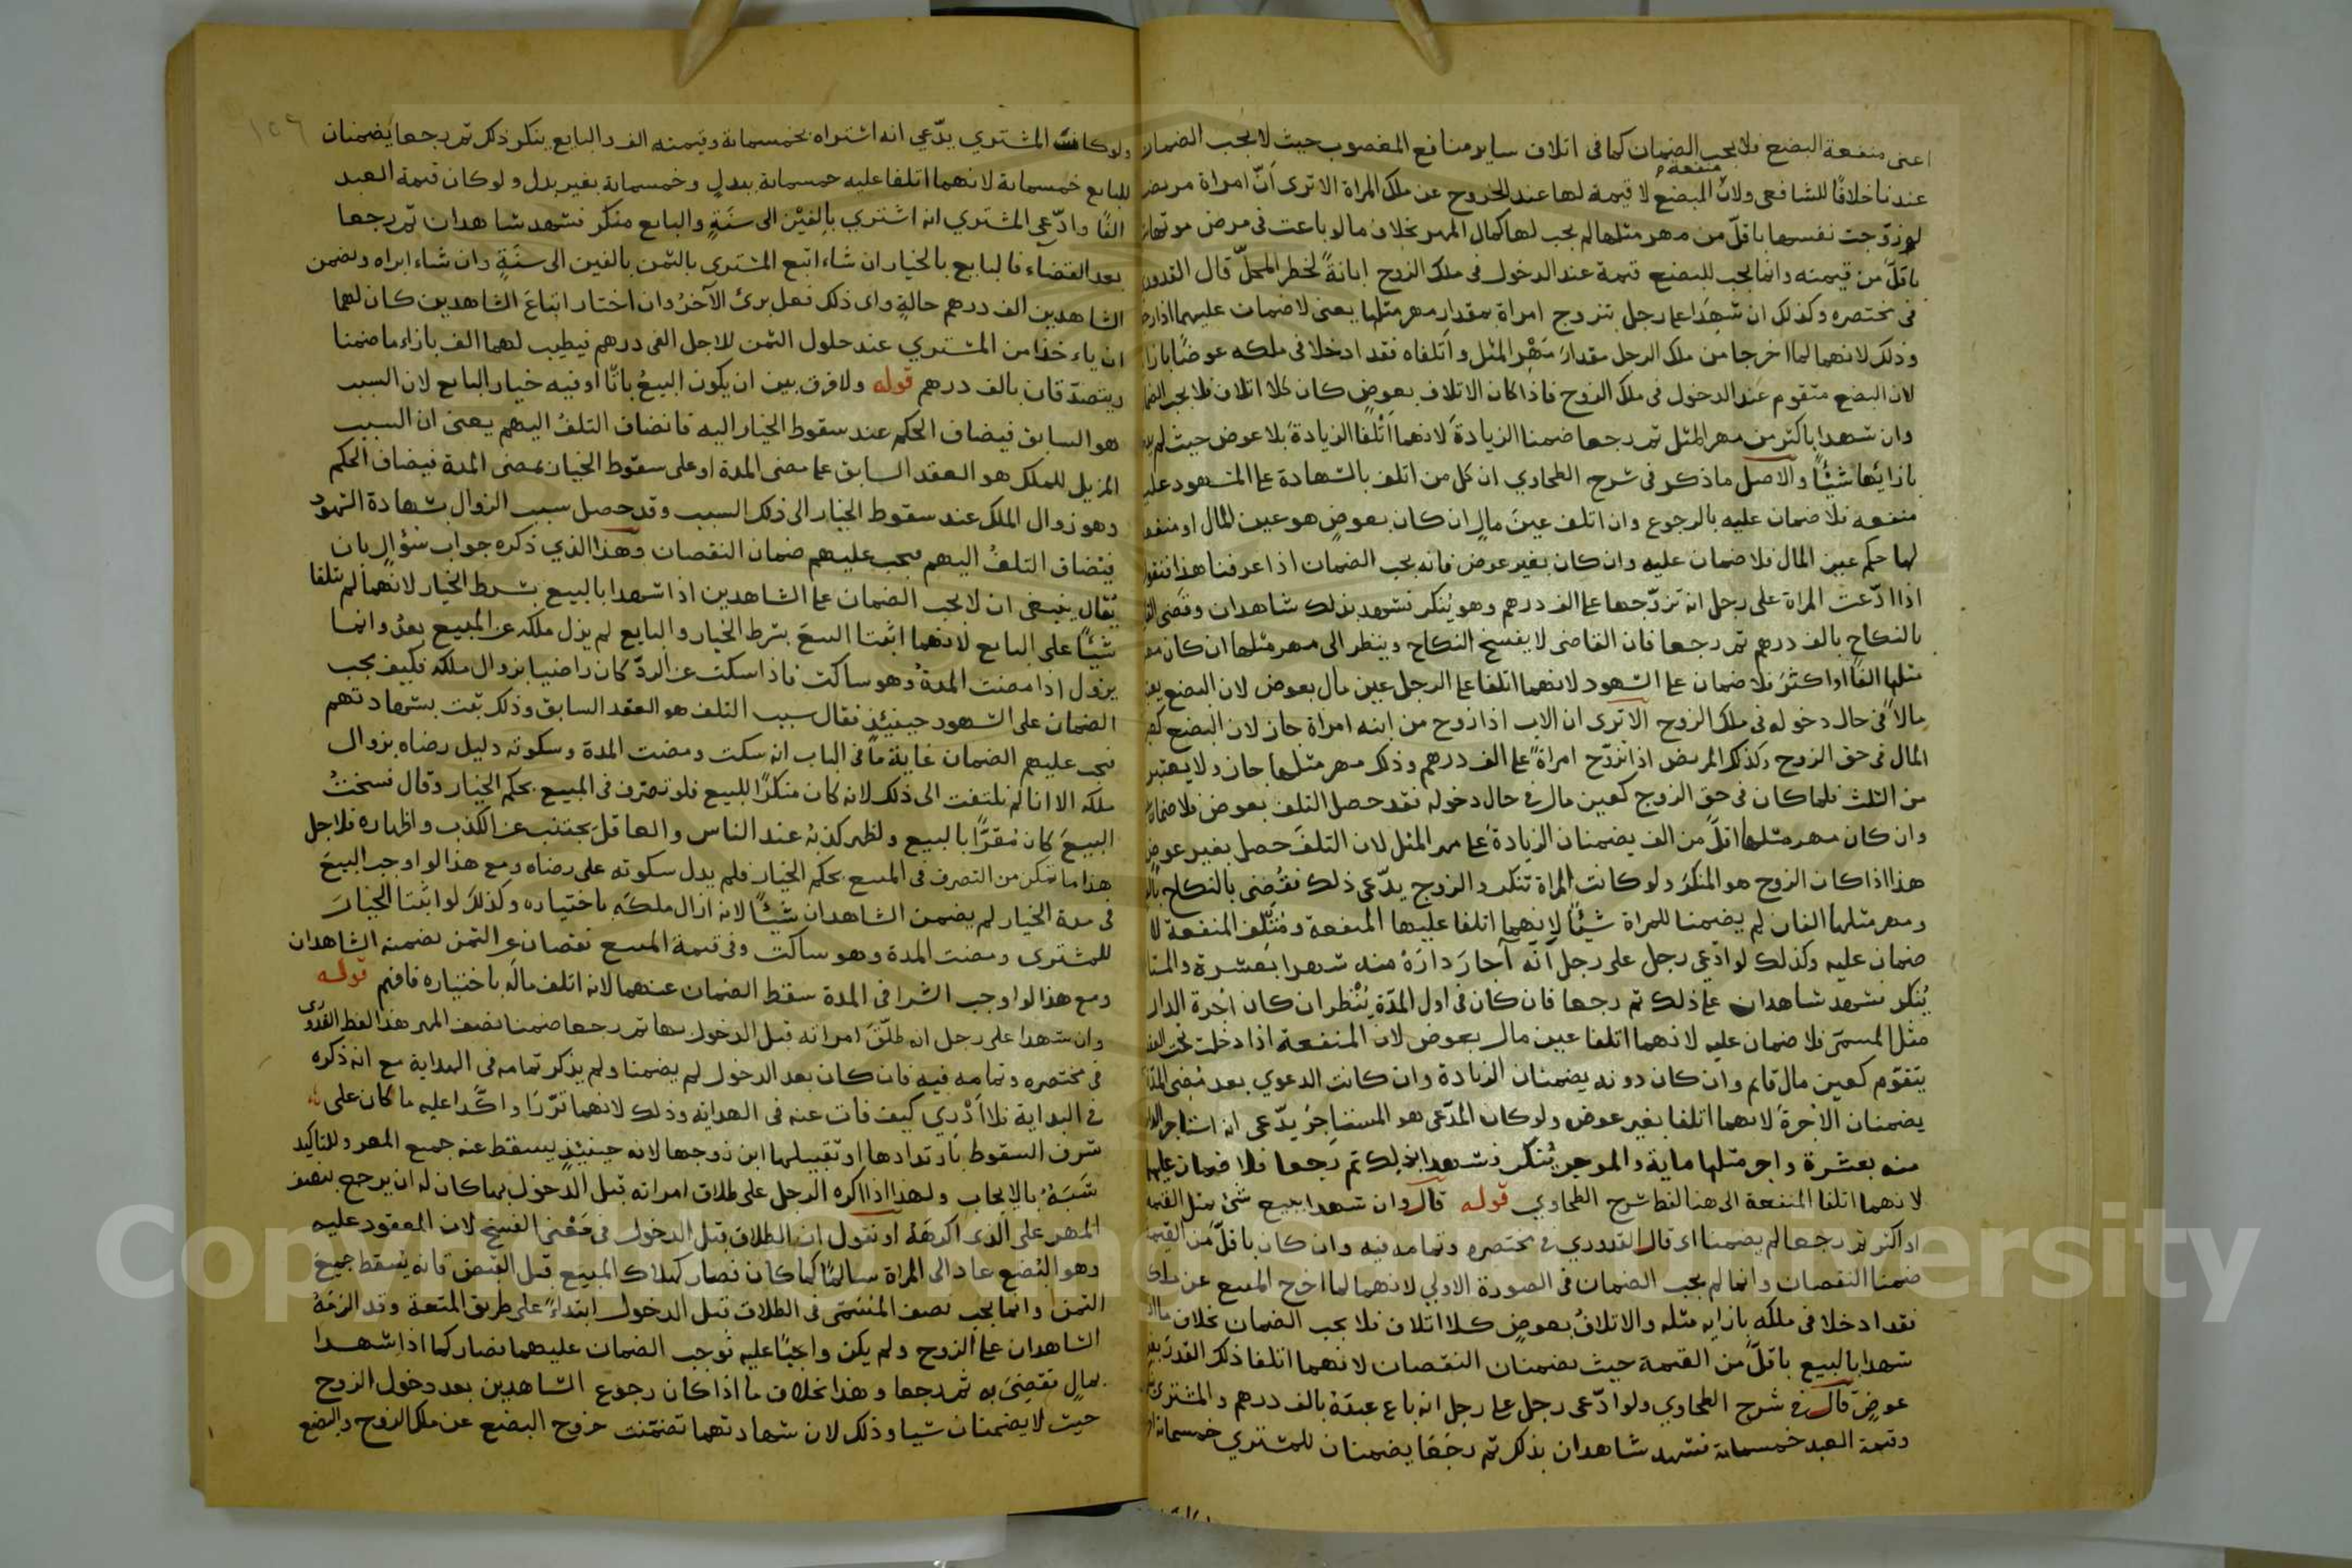 اعنى منفعة البضع فلا يجب الضمان كما فى اتلاف ساير منافع المغصوب حيث لا يجب الضمان
عندنا خلافًا للشافعى ولان منفعة البضع لا قيمة لها عند الخروج عن ملك المراة الا ترى انّ امراة مريضة
لو زوّجت نفسها باقلّ من مهر مثلها لم يجب لها كمال المهر بخلاف ما لو باعت فى مرض موتها
باقلّ من قيمته وانما يجب للبضع قيمة عند الدخول فى ملك الزوج ابانةً لخطر المحلّ قال القدورى
فى مختصره وكذلك ان شهدَا على رجل بتزوج امراة بمقدار مهر مثلها يعنى لا ضمان عليهما اذا رجعا
وذلك لانهما لما اخرجا من ملك الرجل مقدار مَهْرِ المثل واتلفاه فقد ادخلا فى ملكه عوضًا بازا
لان البضع متقوم عند الدخول فى ملك الزوج فاذا كان الاتلاف بعوضٍ كان كلا اتلاف فلا يجب الضمان
وان شهدا باكثر من مهر المثل ثم رجعا ضمنا الزيادةَ لانهما اَتْلَفا الزيادةَ بلا عوض حيث لم
بازائها شيئًا والاصل ما ذكر فى شرح الطحاوي ان كل من اتلف بالشهادة على المشهود عليه
منفعه فلا ضمان عليه بالرجوع وان اتلف عينَ مالٍ ان كان بعوضٍ هو عين المال او منفعة
لها حكم عين المال فلا ضمان عليه وان كان بغير عوض فانه يجب الضمان اذا عرفنا هذا فنقول
اذا ادّعت المراة على رجل انه تزوّجها على الف درهم وهو يُنكر فشهد بذلك شاهدان وقضى
بالنكاح بالف درهم ثم رجعا فان القاضى لا يفسخ النكاح وينظر الى مهر مثلها ان كان مهر
مثلها الفًا او اكثرَ فلا ضمان على الشهود لانهما اتلفا على الرجل عين مال بعوض لان البضع يعد
مالاً فى حال دخوله فى ملك الزوج الا ترى ان الاب اذا زوج من ابنه امراة جاز لان البضع كعين
المال فى حق الزوج وكذلك المريض اذا تزوّج امراةً على الف درهم وذلك مهر مثلها جاز ولا يعتبر
من الثلث فلما كان فى حق الزوج كعين مال فى حال دخوله فقد حصل التلف بعوض فلا ضمان
وان كان مهر مثلها اقلّ من الف يضمنان الزيادةَ على مهر المثل لان التلفَ حصل بغير عوض
هذا اذا كان الزوج هو المنكرَ ولو كانت المراة تنكر والزوج يدّعى ذلك فقُضِى بالنكاح بالف
ومهر مثلها الفان لم يضمنا للمراة شيئًا لانهما اتلفا عليها المنفعة ومُتْلِف المنفعة لا
ضمان عليه وكذلك لو ادّعى رجل على رجل انّه آجارَ دارَهُ منه شهرا بعشرة والمستاجر
يُنكر فشهد شاهدان على ذلك ثم رجعا فان كان فى اول المدّة يُنْظر ان كان اُجرة الدار
مثل المسمىّ فلا ضمان عليه لانهما اتلفا عين مال بعوض لان المنفعة اذا دخلت تحت العقد
يتقوّم كعين مال قايم وان كان دونه يضمنان الزيادة وان كانت الدعوي بعد مُضى المدّة
يضمنان الاجرةَ لانهما اتلفا بغير عوض ولو كان المدّعى هو المستاجِرُ يدّعى انه استاجر الدار
منه بعشرة واجر مثلها ماية والموجر يُنكر فشهدا بذلك ثم رجعا فلا ضمان عليهما
لانهما اتلفا المنفعة الى هنا لفظ شرح الطحاوي قوله قال وان شهدا ببيع شئ بمثل القيمة
او اكثر ثم رجعا لم يضمنا اى قال القدوري فى مختصره وتمامه فيه وان كان باقلّ من القيمة
ضمنا النقصان وانما لم يجب الضمان فى الصورة الاولى لانهما لما اخرج المبيع عن ملك
فقد ادخلا فى ملكه بازايه مثله والاتلافُ بعوضٍ كلا اتلاف فلا يجب الضمان بخلاف ما اذا
شهدا بالبيع باقلّ من القيمة حيث يضمنان النقصان لانهما اتلفا ذلك القدرَ بغير
عوضٍ قال فى شرح الطحاوي ولو ادّعى رجل على رجل انه باع عبدَهُ بالف درهم والمشترى
وقيمة العبد خمسماية فشهد شاهدان بذلك ثم رجَعَا يضمنان للمشتري خمسماية
ولو كانت المشتري يدّعي انه اشتراه بخمسماية وقيمته الف والبايع ينكر ذلك ثم رجعا يضمنان
للبايع خمسماية لانهما اتلفا عليه خمسماية ببدلٍ وخمسماية بغير بدل ولو كان قيمة العبد
الفًا وادّعى المشترى انه اشتري بالفَيْن الى سَنَةٍ والبايع منكر فشهد شاهدان ثم رجعا
بعد القضاء فالبايع بالخيار ان شاء اتبع المشترى بالثمن بالفين الى سَنَةٍ وان شاء ابراه وضمن
الشاهدين الف درهم حالةٍ واى ذلك فعل برئ الآخرُ وان اختار اتباعَ الشاهدين كان لهما
ان ياءخذا من المشتري عند حلول الثمن للاجل الفى درهم فيطيب لهما الف بازاء ما ضمنا
ويتصدّقان بالف درهم قوله ولا فرق بين ان يكون البيعُ باتًّا او فيه خيار البايع لان السبب
هو السابق فيضاف الحكم عند سقوط الخيار اليه فانضاف التلفُ اليهم يعنى ان السبب
المزيل للملك هو العقد السابق على مضى المدة او على سقوط الخيار بمضى المدة فيضاف الحكم
وهو زوال الملك عند سقوط الخيار الى ذلك السبب وقد حصل سبب الزوال بشهادة الشهود
فيُضاف التلفُ اليهم فيجب عليهم ضمان النقصان وهذا الذي ذكره جواب سُؤالٍ بان
يُقال ينبغى ان لا يجب الضمان على الشاهدين اذا شهدا بالبيع بشرط الخيار لانهما لم يتلفا
شيئًا على البايع لانهما اثبتا البيعَ بشرط الخيار والبايع لم يزل ملكه عن المبيع بعدُ وانما
يزول اذا مضت المدةُ وهو ساكت فاذا سكت عن الردّ كان راضيا بزوال ملكه فكيف يجب
الضمان على الشهود حينئذٍ فقال سبب التلف هو العقد السابق وذلك ثبت بشهادتهم
فيجب عليهم الضمان غاية ما فى الباب انه سكت ومضت المدة وسكوته دليل رضاه بزوال
ملكه الا انا لم نلتفت الى ذلك لانه كان منكرًا للبيع فلو تصرف فى المبيع بحكم الخيار وقال فسختُ
البيعَ كان مُقِرًّا بالبيع ولظهر كذبهُ عند الناس والعاقل يجتنب عن الكذب واظهاره فلاجل
هذا ما تمكن من التصرف فى المبيع بحكم الخيار فلم يدل سكوته على رضاه ومع هذا لو اوجب البيعَ
فى مدة الخيار لم يضمن الشاهدان شيئًا لانه ازال ملكَه باختياره وكذلك لو اثبتا الخيارَ
للمشترى ومضت المدة وهو ساكت وفى قيمة المبيع نقصان عن الثمن يضمنه الشاهدان
ومع هذا لو اوجب الشرا فى المدة سقط الضمان عنهما لانه اتلف مالَه باختياره فافهم قوله
وان شهدا على رجل انه طلّقَ امراته قبل الدخول بها ثم رجعا ضمنا نصف المهر هذا لفظ القدورى
فى مختصره وتمامه فيه فان كان بعد الدخول لم يضمنا ولم يذكر تمامه فى الهداية مع انه ذكره
فى البداية فلا اَدْري كيف فات عنه فى الهداية وذلك لانهما قرّرَا واكّدا عليه ما كان على
شرف السقوط بارتدادها او تقبيلها ابن زوجها لانه حينئذٍ يسقط عنه جميع المهر وللتاكيد
شَبَهٌ بالايجاب ولهذا اذا اكره الرجل على طلاق امراته قبل الدخول بها كان له ان يرجع بنصف
المهر على الذى اكرهَهُ او نقول ان الطلاق قبل الدخول فى مَعْنى الفسخ لان المعقود عليه
وهو البُضع عاد الى المراة سالمًا كما كان فصار كهلاك المبيع قبل القبض فانه يُسقط جميعَ
الثمن وانما يجب نصف المُسَمّى فى الطلاق قبل الدخول ابتداءً على طريق المتعة وقد الزمَهُ
الشاهدان على الزوج ولم يكن واجبًا عليه فوجب الضمان عليهما فصار كما اذا شهدا
بمالٍ فقُضِىَ به ثم رجعا وهذا بخلاف ما اذا كان رجوع الشاهدين بعد دخول الزوج
حيث لا يضمنان شيا وذلك لان شهادتهما تضمّنت خروج البضع عن ملك الزوج والبضع
١٥٦
Copyright © King Saud University